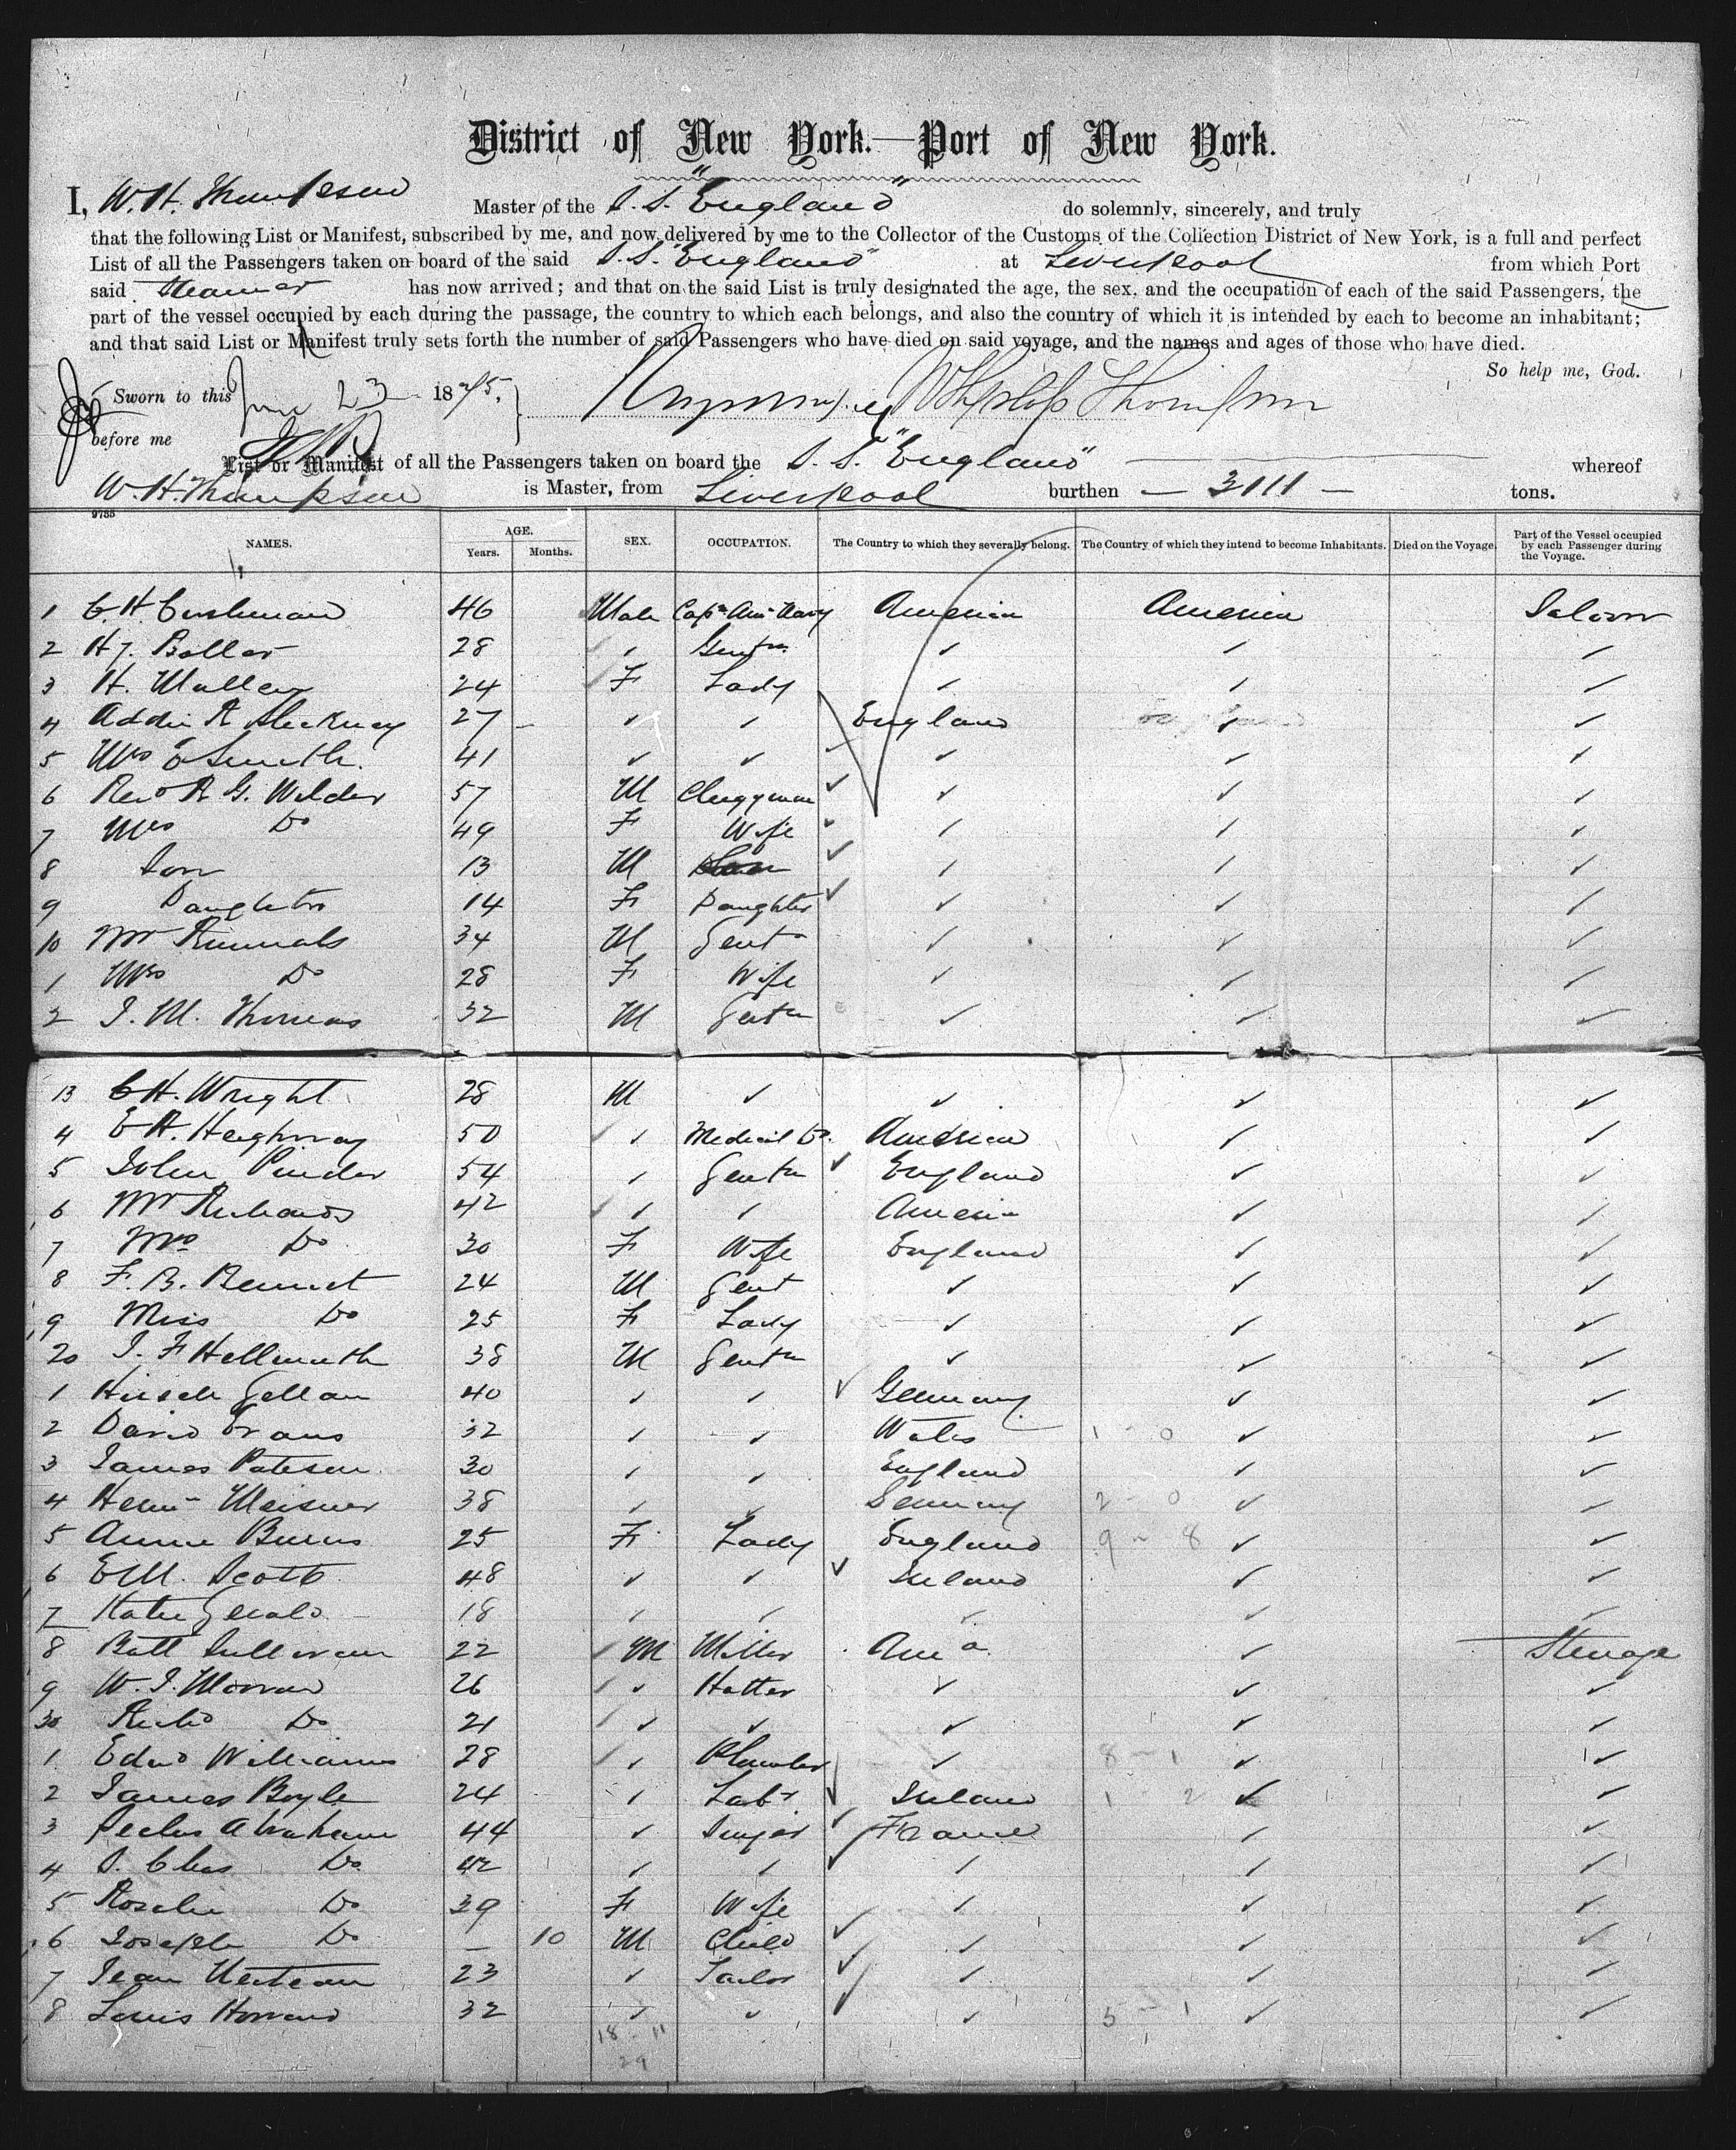 District of New York.—Port of New York.
I, W. H. Thompson Master of the S. S. "England" do solemnly, sincerely, and truly
that the following List or Manifest, subscribed by me, and now delivered by me to the Collector of the Customs of the Collection District of New York, is a full and perfect
List of all the Passengers taken on board of the said S. S. "England" at Liverpool from which Port
said Steamer has now arrived; and that on the said List is truly designated the age, the sex, and the occupation of each of the said Passengers, the
part of the vessel occupied by each during the passage, the country to which each belongs, and also the country of which it is intended by each to become an inhabitant;
and that said List or Manifest truly sets forth the number of said Passengers who have died on said voyage, and the names and ages of those who have died.
So help me, God.
Sworn to this June 23 1875. Thompson
before me
List or Manifest of all the Passengers taken on board the S. S. "England" whereof
W. H. Thompson is Master, from Liverpool burthen — 3111 — tons.
9785
NAMES. AGE. Years. Months. SEX. OCCUPATION. The Country to which they severally belong. The Country of which they intend to become Inhabitants. Died on the Voyage. Part of the Vessel occupied by each Passenger during the Voyage.
1 C. H. Cushman 46 Male Capt Am Navy America America Saloon
2 H J. Boller 28 ✓ Gentn ✓ ✓ ✓
3 H. Mullen 24 F Lady ✓ ✓ ✓
4 Addie R 27 – ✓ ✓ England ✓ ✓
5 Mrs E Smith. 41 ✓ ✓ ✓ ✓ ✓
6 Revd R G. Wilder 57 M Clergyman ✓ ✓ ✓
7 Mrs Do 49 F Wife ✓ ✓ ✓
8 Son 13 M ✓ ✓ ✓
9 Daughter 14 F Daughter ✓ ✓ ✓
10 Mr 34 M Gent ✓ ✓ ✓
1 Mrs Do 28 F Wife ✓ ✓ ✓
2 J. M. Thomas 32 M Gentn ✓ ✓ ✓
13 C H. Wright 28 M ✓ ✓ ✓ ✓
4 E H. Heighway 50 ✓ Medical Dr. American ✓ ✓
5 John Pinder 54 ✓ Gentn England ✓ ✓
6 Mr Richards 42 ✓ ✓ America ✓ ✓
7 Mrs Do 30 F Wife England ✓ ✓
8 F. B. Bennet 24 M Gent ✓ ✓ ✓
9 Miss Do 25 F Lady ✓ ✓ ✓
20 J. F Hellmuth 38 M Gentn ✓ ✓ ✓
1 Hirsch Gellan 40 ✓ ✓ Germany ✓ ✓
2 David Evans 32 ✓ ✓ Wales 1 - 0 ✓ ✓
3 James Pateson 30 ✓ ✓ England ✓ ✓
4 Henri Meisner 38 ✓ ✓ Germany 2 - 0 ✓ ✓
5 Annie Burns 25 F Lady England 9 - 8 ✓ ✓
6 E M. Scott 48 ✓ ✓ Ireland ✓ ✓
7 Katie Gerald 18 ✓ ✓ ✓ ✓ ✓
8 Batt Sullivan 22 M Miller Ama ✓ Steerage
9 W. J. Morran 26 ✓ Hatter ✓ ✓ ✓
30 Richd Do 21 ✓ ✓ ✓ ✓ ✓
1 Edwd Williams 28 ✓ Plumber ✓ 8 - 1 ✓ ✓
2 James Boyle 24 ✓ Labr Ireland 1 - 2 ✓ ✓
3 Abraham 44 ✓ Singer France ✓ ✓
4 S. Chas Do 42 ✓ ✓ ✓ ✓ ✓
5 Rosalie Do 39 F Wife ✓ ✓ ✓
6 Joseph Do — 10 M Child ✓ ✓ ✓
7 Jean 23 ✓ Tailor ✓ ✓ ✓
8 Louis Howard 32 ✓ ✓ ✓ 5 - 1 ✓ ✓
18 - 11
29